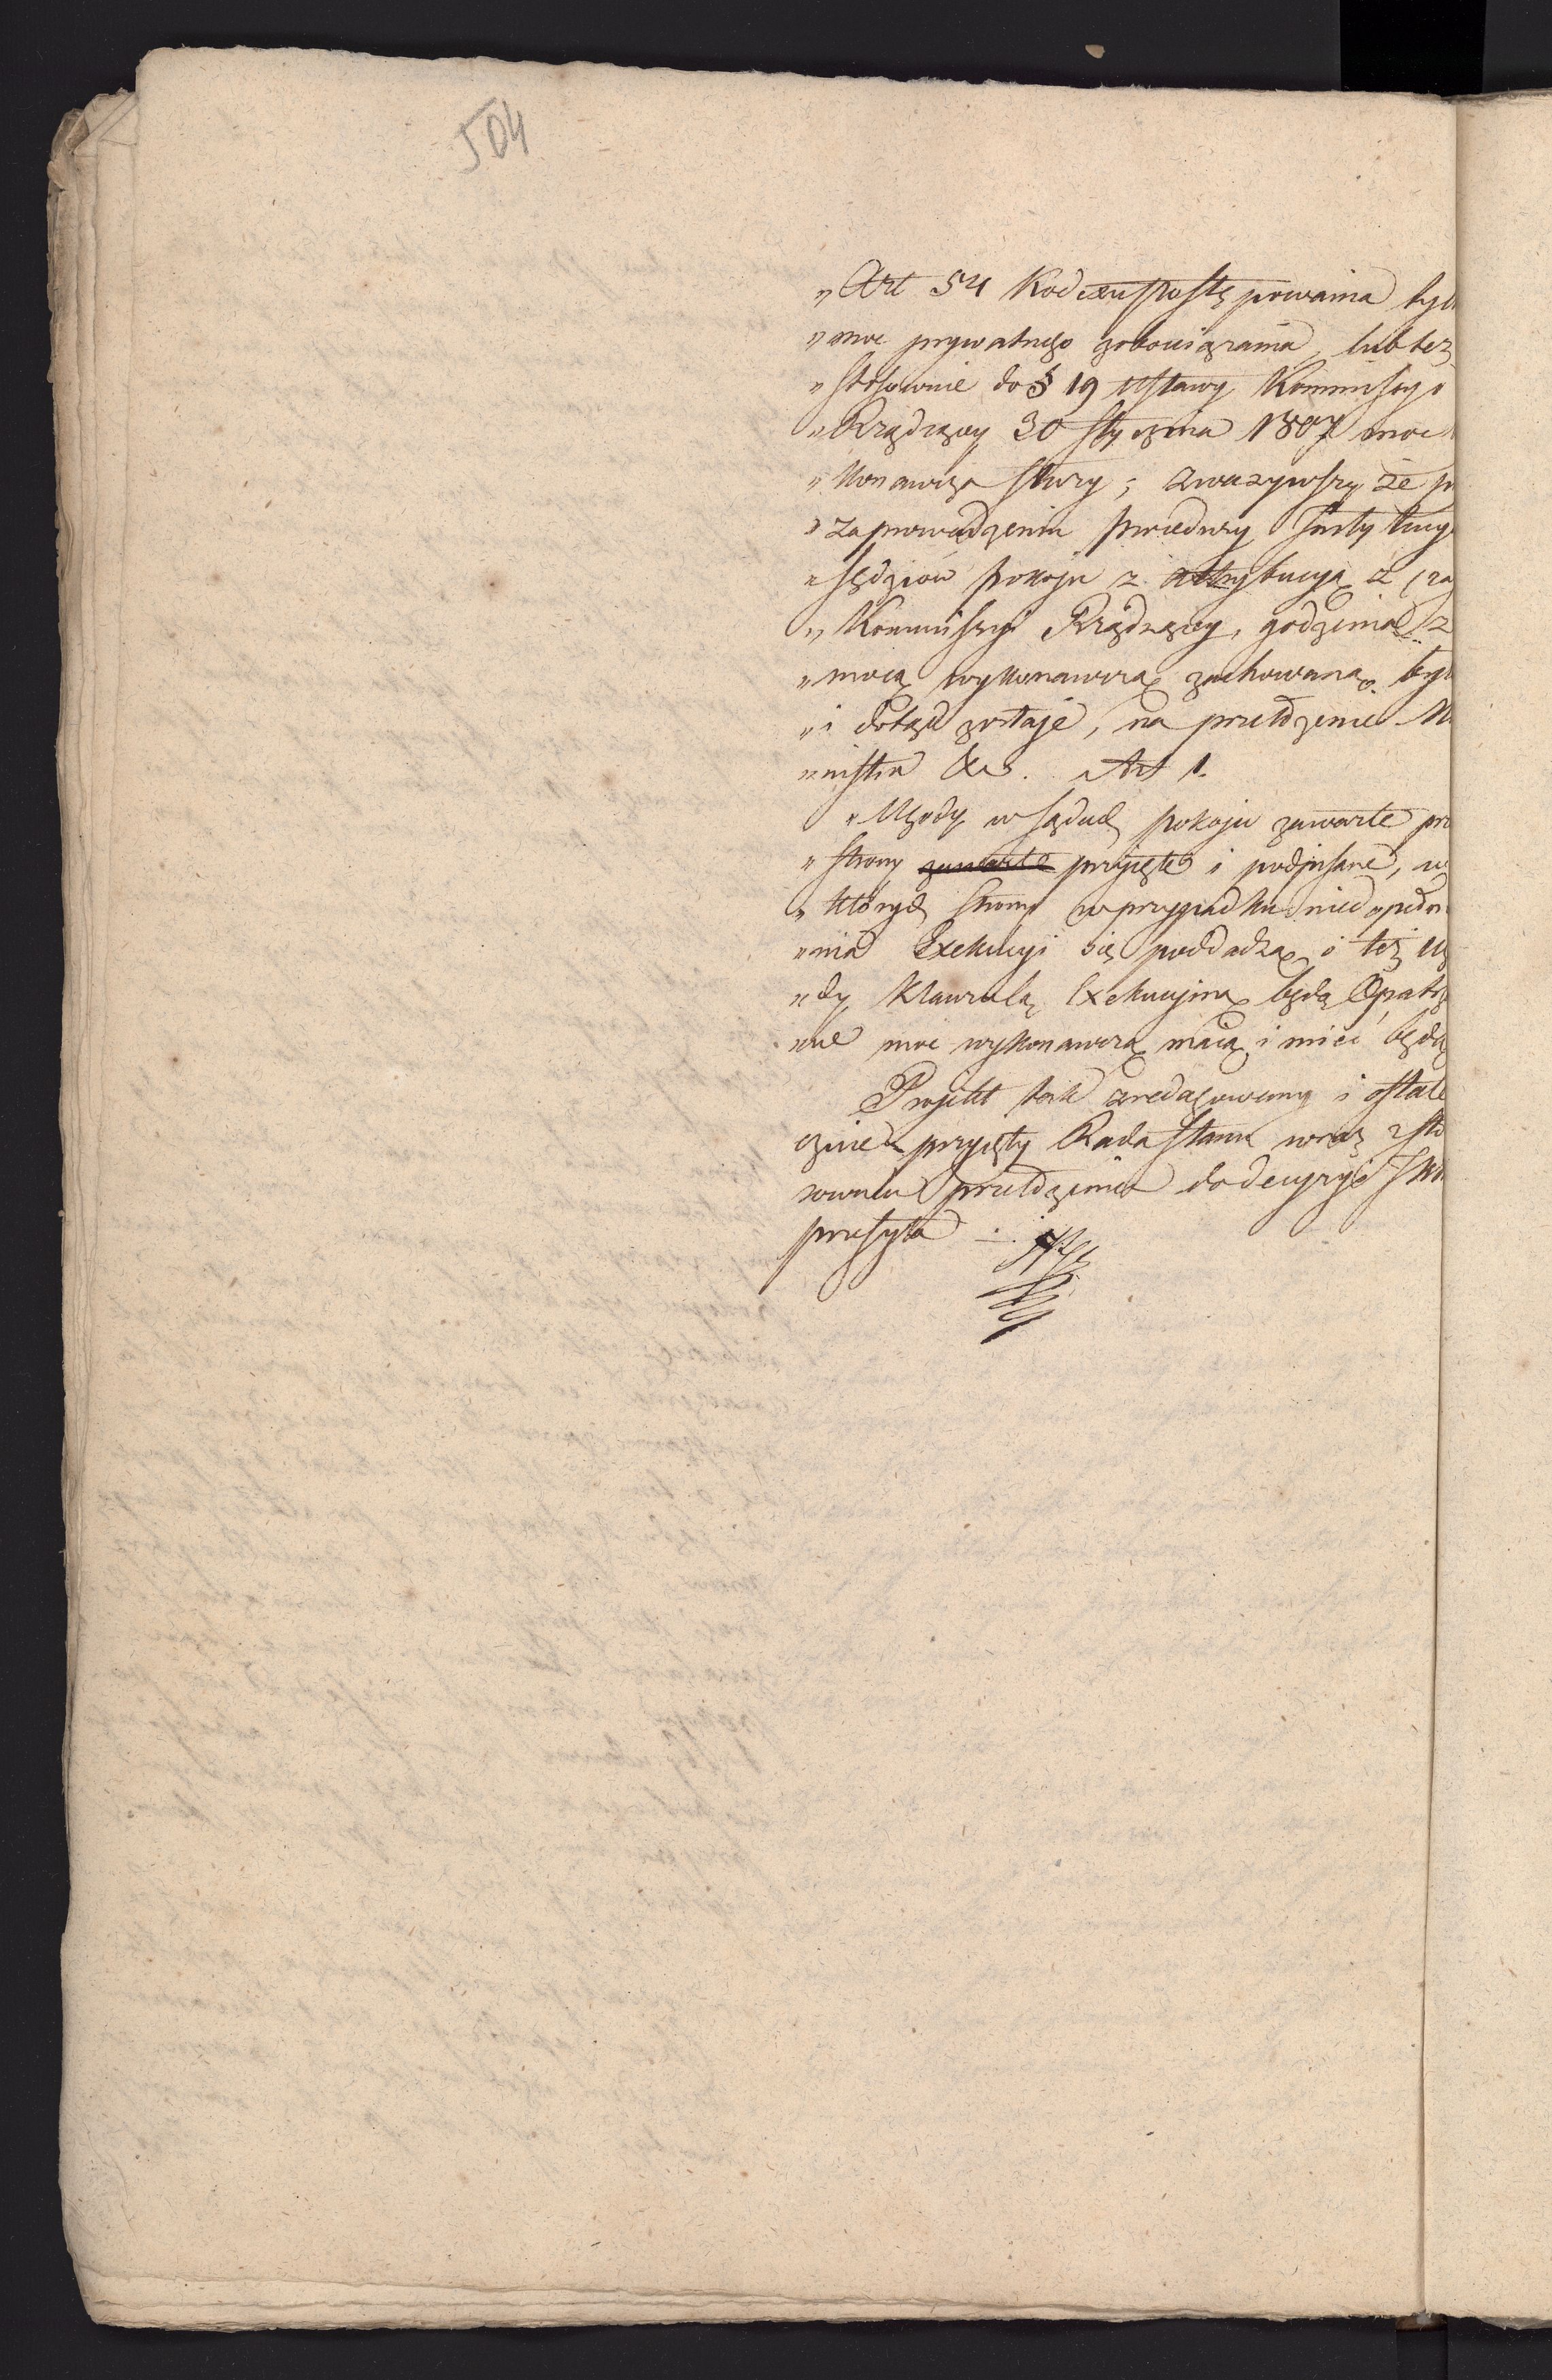 504
„Art 54 Kodexu postępowania tyl
„moc prywatnego zobowiązania, lub też
„stosownie do § 19 ustawy Kommissyi
„Rządzącey 30 stycznia 1807 moc
„konawczą służy; zważywszy że p
„zaprowadzeniu procedury Instytucy
„sędziów pokoju z attrybucyą z cza
„Kommissyi Rządzącey, godzenia z
„mocą wykonawczą zachowaną był
„i dotąd zostaje, na przełożenie Mi
„nistra &c. Art 1.
„Ugody w sądach pokoju zawarte prz
„strony zawarte przyjęte i podpisane, w
„których strony w przypadku niedopełni
„nia Exekucyi się poddadzą, i też ug
„dy klauzulą Exekucyjną będą Opatrz
„ne moc wykonawczą mają i mieć będą
Projekt tak zredagowany i ostate
cznie przyjęty Rada stanu wraz z sto
sownem przełożeniem do decyzyi J Kr
przesyła